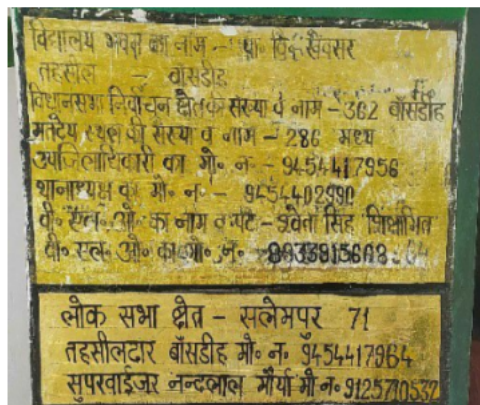 विद्यालय भवन का नाम - प्रा० वि० खेवसर
तहसील - बाँसडीह
विधानसभा निर्वाचन क्षेत्र की संख्या व नाम - 362 बाँसडीह
मतदेय स्थल की संख्या व नाम - 286 मध्य
उपजिलाधिकारी का मो० न० - 9454417956
थानाध्यक्ष का मो० न० - 9454402990
वी० एल० ओ० का नाम व पद - श्वेता सिंह शिक्षामित्र
वी० एल० ओ० का मो० न०
लोक सभा क्षेत - सलेमपुर 71
तहसीलदार बाँसडीह मो० न० 9454417964
सुपरवाईजर नन्दलाल मौर्या मो न० 9125730532